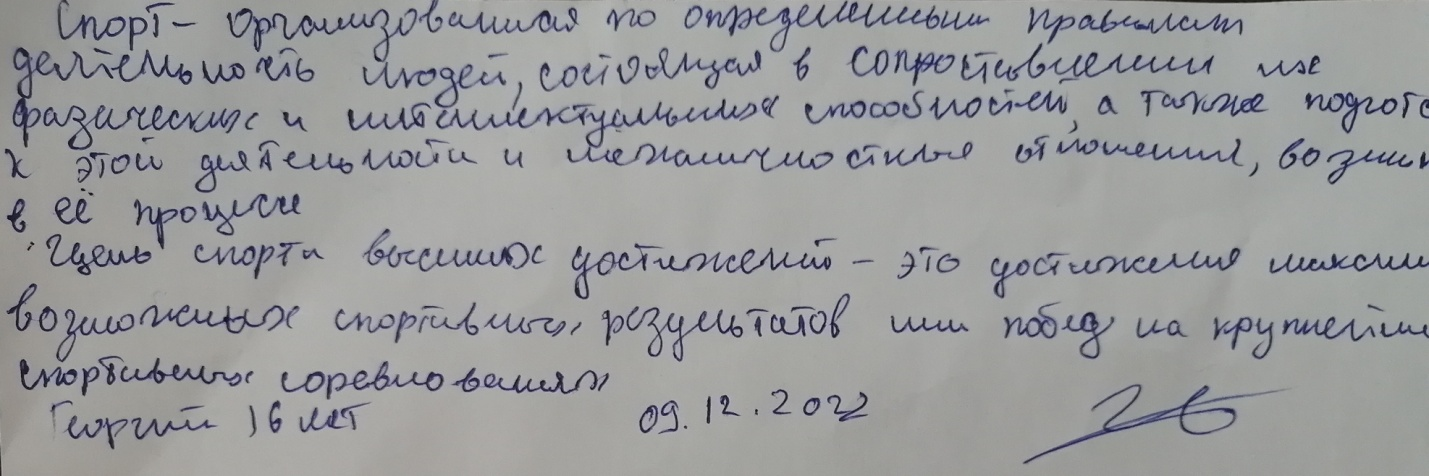 Спорт - организованная по определенным правилам
деятельность людей, состоящая в сопроставлении их
физических и интеллектуальных способностей, а также подгото
к этой деятельности и межличностные отношения, возник
в её процессе
Цель спорта высших достижений - это достижения максим
возможных спортивных результатов или побед на крупнейши
спортивных соревнованиях
Георгий 16 лет 09.12.2022